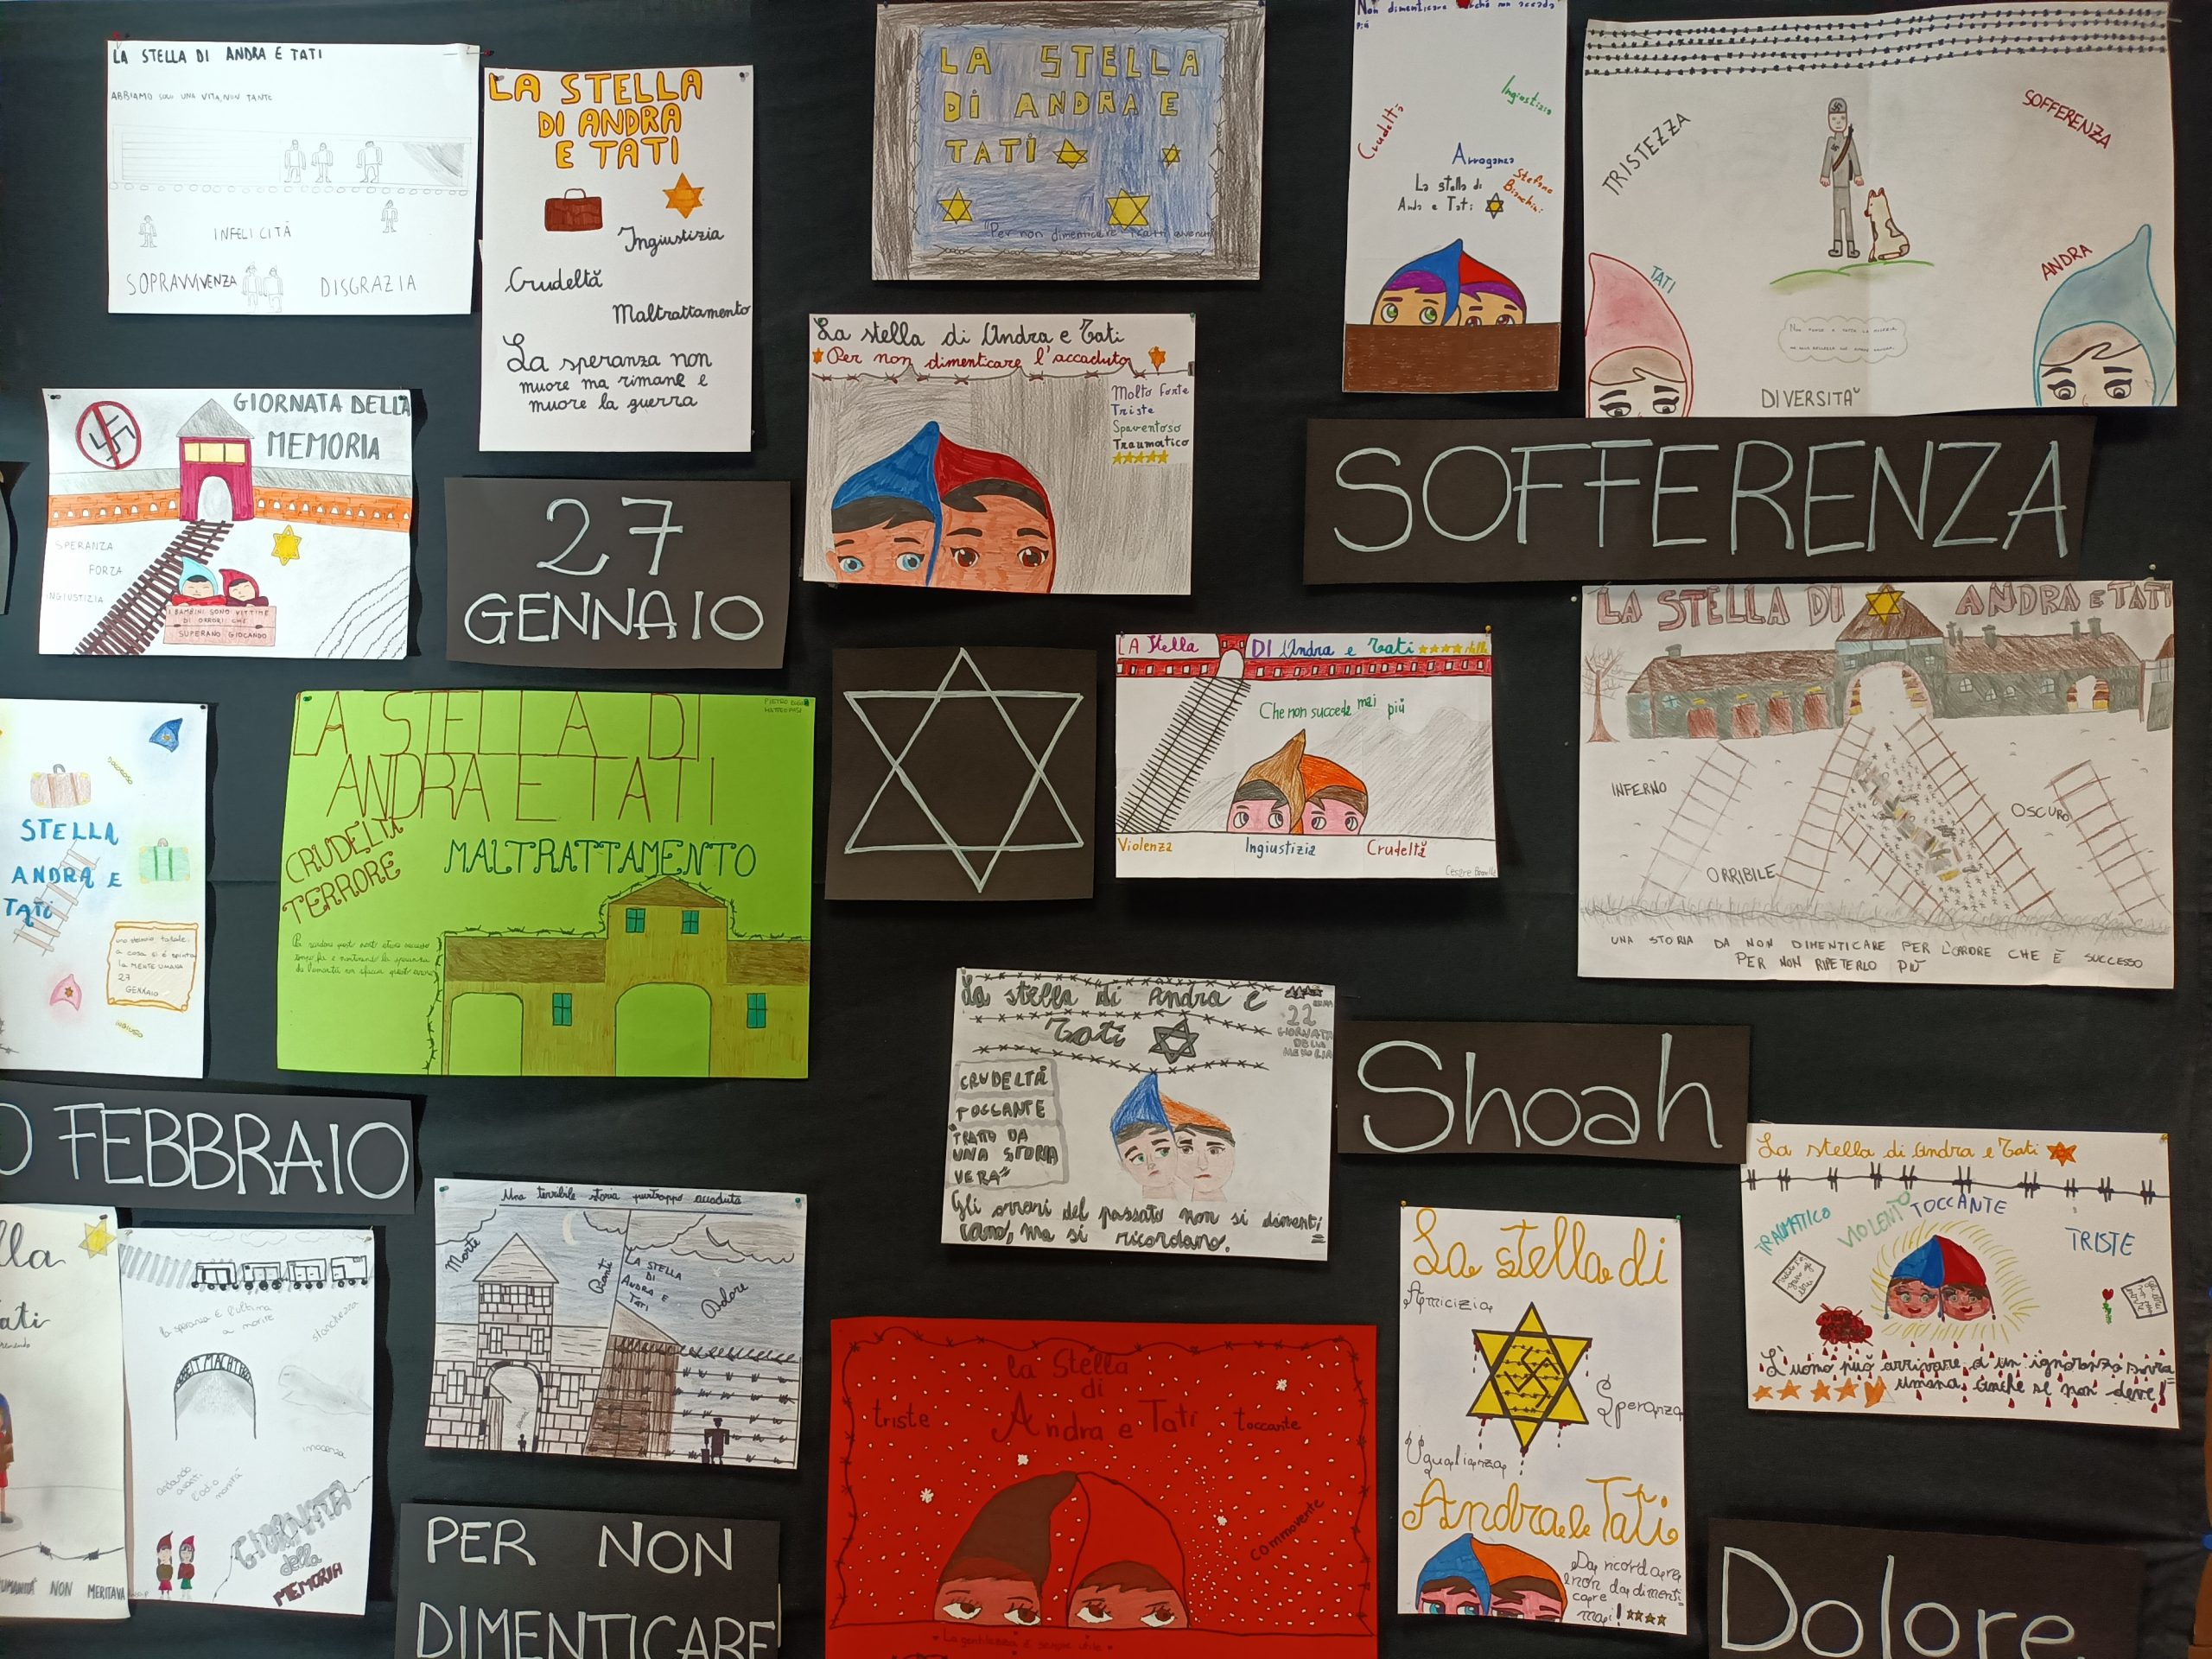 LA STELLA DI ANDRA E TATI
ABBIAMO SOLO UNA VITA, NON TANTE
INFELICITÀ
SOPRAVVIVENZA
DISGRAZIA
LA STELLA
DI ANDRA
E TATI
Ingiustizia
Crudeltà
Maltrattamento
La speranza non
muore ma rimane e
muore la guerra
LA STELLA
DI ANDRA E
TATI
"Per non dimenticare
Non dimenticare perché non accada
più
Ingiustizia
Crudeltà
Arroganza
La stella di
Andra e Tati
Stefano
Bianchini
TRISTEZZA
SOFFERENZA
TATI
ANDRA
DIVERSITA'
GIORNATA DELLA
MEMORIA
SPERANZA
FORZA
INGIUSTIZIA
I BAMBINI SONO VITTIME
DI ORRORI CHE
SUPERANO GIOCANDO
27
GENNAIO
La stella di Andra e Tati
Per non dimenticare l'accaduto
Molto forte
Triste
Spaventoso
Traumatico
SOFFERENZA
STELLA
ANDRA E
TATI
LA MENTE UMANA
27
GENNAIO
LA STELLA DI
ANDRA E TATI
CRUDELTÀ
TERRORE
MALTRATTAMENTO
LA Stella DI Andra e Tati
Che non succeda mai più
Violenza
Ingiustizia
Crudeltà
LA STELLA DI ANDRA E TATI
INFERNO
OSCURO
ORRIBILE
UNA STORIA DA NON DIMENTICARE PER L'ORRORE CHE È SUCCESSO
PER NON RIPETERLO PIÙ
La stella di Andra e
Tati
22
GIORNATA
DELLA
MEMORIA
CRUDELTÀ
TOCCANTE
"TRATTO DA
UNA STORIA
VERA"
Gli orrori del passato non si dimenti
cano, ma si ricordano.
Shoah
O FEBBRAIO
La stella di Andra e Tati
TRAUMATICO
VIOLENTO
TOCCANTE
TRISTE
L'uomo può arrivare a un'ignoranza sovra
umana, anche se non deve!
lla
ati
UMANITÀ NON MERITAVA
la speranza è l'ultima
a morire
stanchezza
innocenza
GIORNATA
della
MEMORIA
Una terribile storia purtroppo accaduta
Morte
Pianti
LA STELLA
DI
ANDRA E
TATI
Dolore
PER NON
DIMENTICARE
la Stella
di
Andra e Tati
triste
toccante
commovente
La gentilezza è sempre utile
La stella di
Amicizia
Speranza
Uguaglianza
Andra e Tati
Da ricordare
e non da dimenti
care
mai!
Dolore